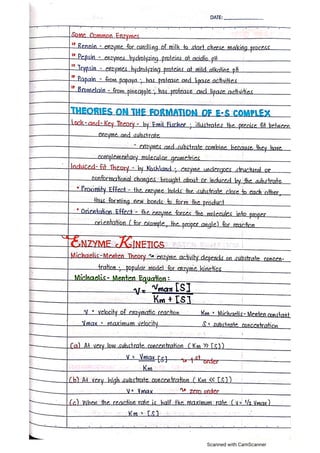 DATE:
Some Common Enzymes
Rennin - enzyme for curdling of milk to start cheese making process
Pepsin - enzymes hydrolyzing proteins at acidic pH
Trypsin - enzymes hydrolyzing proteins at mild alkaline pH
Papain - from papaya ; has protease and lipase activities
Bromelain - from pineapple ; has protease and lipase activities
THEORIES ON THE FORMATION OF E-S COMPLEX
Lock-and-Key Theory - by Emil Fischer ; illustrates the precise fit between
enzyme and substrate
- enzymes and substrate combine because they have
complementary molecular geometries
Induced-Fit Theory - by Koshland ; enzyme undergoes structural or
conformational changes brought about or induced by the substrate
* Proximity Effect - the enzyme holds the substrate close to each other,
thus forming new bonds to form the product
* Orientation Effect - the enzyme forces the molecules into proper
orientation (for example, the proper angle) for reaction
ENZYME KINETICS
Michaelis-Menten Theory enzyme activity depends on substrate concen-
tration ; popular model for enzyme kinetics
Michaelis-Menten Equation:
V = Vmax [S]
Km + [S]
V = velocity of enzymatic reaction Km = Michaelis-Menten constant
Vmax = maximum velocity S = substrate concentration
(a) At very low substrate concentration (Km >> [S])
V = Vmax [S] 1st order
Km
(b) At very high substrate concentration (Km << [S])
V = Vmax zero order
(c) When the reaction rate is half the maximum rate (v = 1/2 Vmax)
Km = [S]
Scanned with CamScanner